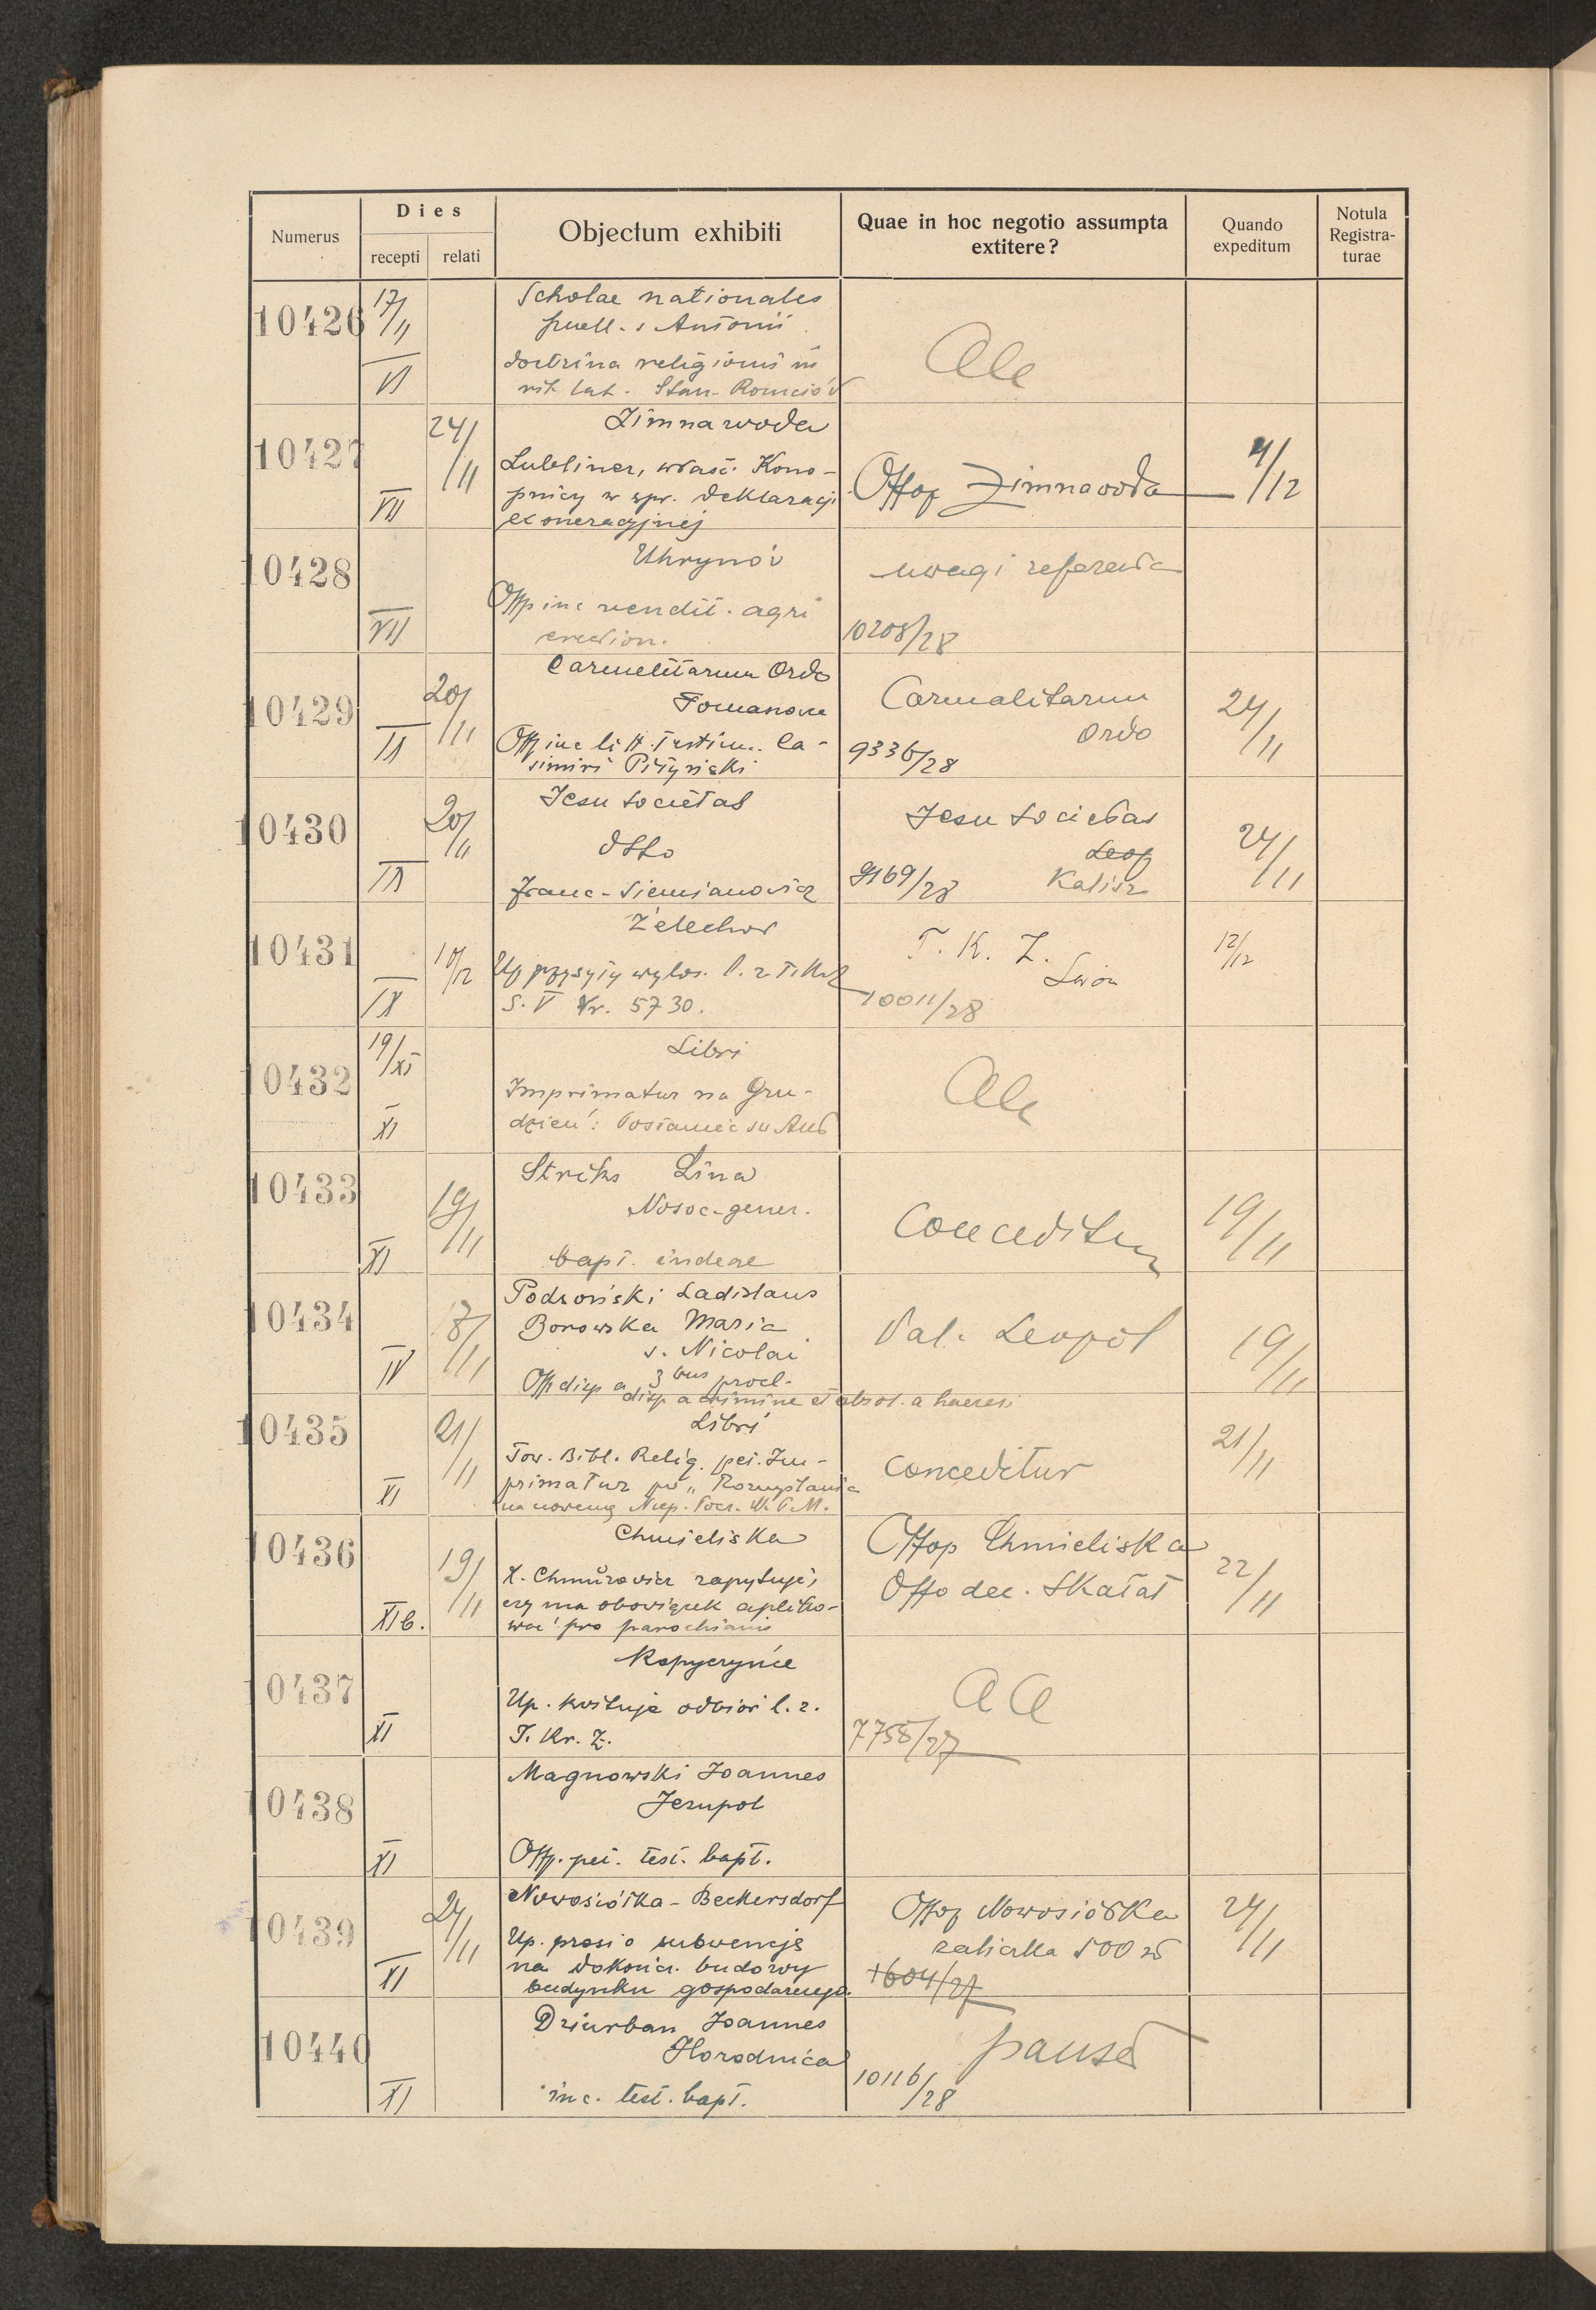 Numerus
Dies
recepti
relati
Objectum exhibiti
Quae in hoc negotio assumpta
extitere?
Quando
expeditum
Notula
Registra-
turae
10426
17/11
VI
Scholae nationales
puell. s Antonii
doctrina religionis
rit. lat.
10427
24/11
VII
Zimnawoda
Lubliner, właśc. Kono-
pnicy w spr. deklaracji
exoneracyjnej
Offop Zimnawoda
4/12
10428
VII
Uhrynów
Offp inc vendit. agri
erection.
uwagi referenta
10208/28
10429
IX
20/11
Carmelitarum Ordo
Offp inc litt. Testim. Ca-
simiri
Carmelitarum
Ordo
9336/28
24/11
10430
IX
20/11
Jesu Societas
dtto
Franc. Siemianowicz
Jesu Societas
Leop
Kalisz
9169/28
24/11
10431
IX
10/12
Żelechów
Up przysyła wylos. l. z T. Kr Z
S. V Nr. 5730.
T. K. Z.
Lwów
10011/28
12/12
10432
19/XI
XI
Libri
Imprimatur na Gru-
dzień: Posłaniec św Ant
10433
XI
19/11
Striks Lina
Nosoc. gener.
bapt. iudeae
Conceditur
19/11
10434
IV
18/11
Podroński Ladislaus
Borowska Maria
s. Nicolai
Offp disp a 3bus procl.
disp a crimine et absol. a haeresi
Pal. Leopol
19/11
10435
XI
21/11
Libri
Tow. Bibl. Relig. pet. Im-
primatur "Rozmyślania
na nowennę Niep. Pocz. N. P. M.
conceditur
21/11
10436
XI b.
19/11
Chmieliska
X. Chmurowicz zapytuje,
czy ma obowiązek apliko-
wać pro parochianis
Offop Chmieliska
Offo dec. Skałat
22/11
10437
XI
Kopyczyńce
Up. kwituje odbiór l. z.
T. Kr. Z.
aa
7758/27
10438
XI
Magnowski Joannes
Jezupol
Offp. pet. test. bapt.
10439
XI
24/11
Nowosiółka - Beckersdorf
Up. prosi o subwencję
na dokończ. budowy
budynku gospodarczego.
Offop Nowosiółka
zaliczka 500 zł
1604/27
24/11
10440
XI
Dziurban Joannes
Horodnica
inc. test. bapt.
10116/28